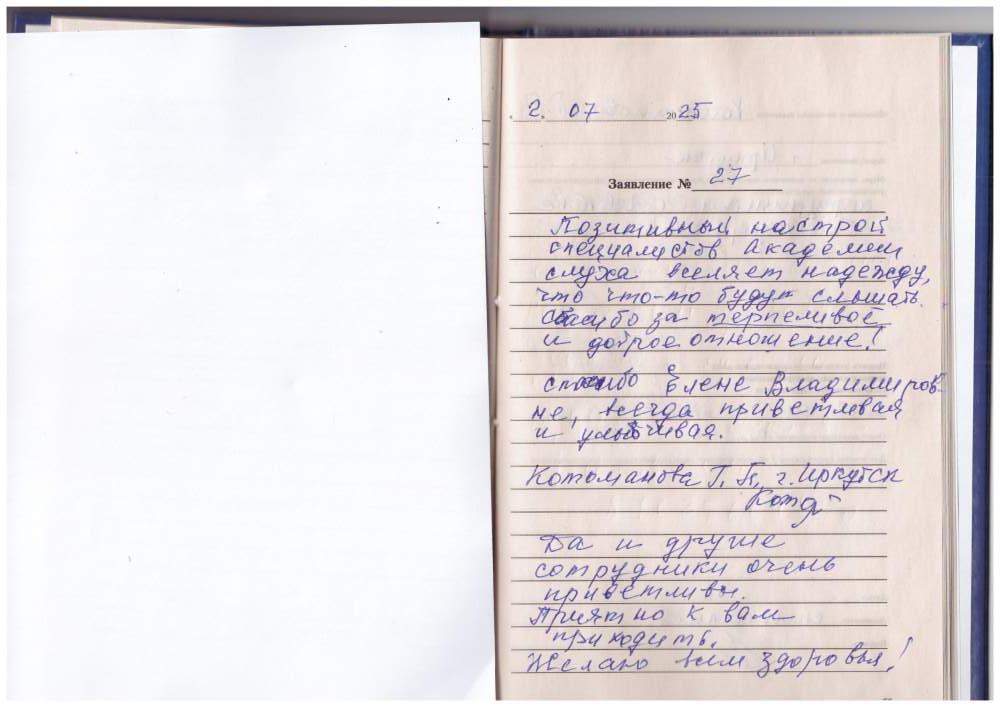 2. 07 2025
Заявление № 27
Позитивный настрой
специалистов Академии
слуха вселяет надежду,
что что-то будут слышать.
Спасибо за терпеливое
и доброе отношение!
спасибо Елене Владимиров-
не, всегда приветливая
и улыбчивая.
Котоманова Г. Г., г. Иркутск
Да и другие
сотрудники очень
приветливы.
Приятно к вам
приходить.
Желаю всем здоровья!